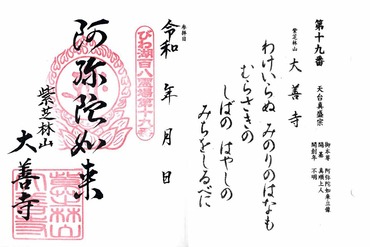 第十九番
天台真盛宗
御本尊 阿弥陀如来三尊
開基 真順上人
開創年 不明
紫芝林山
大善寺
わけいらぬ みのりのはなも
むらさきの
しばの はやしの
みちをしるべに
参拝日
令和 年 月 日
びわ湖百八霊場第十九番
阿弥陀如来
紫芝林山
大善寺